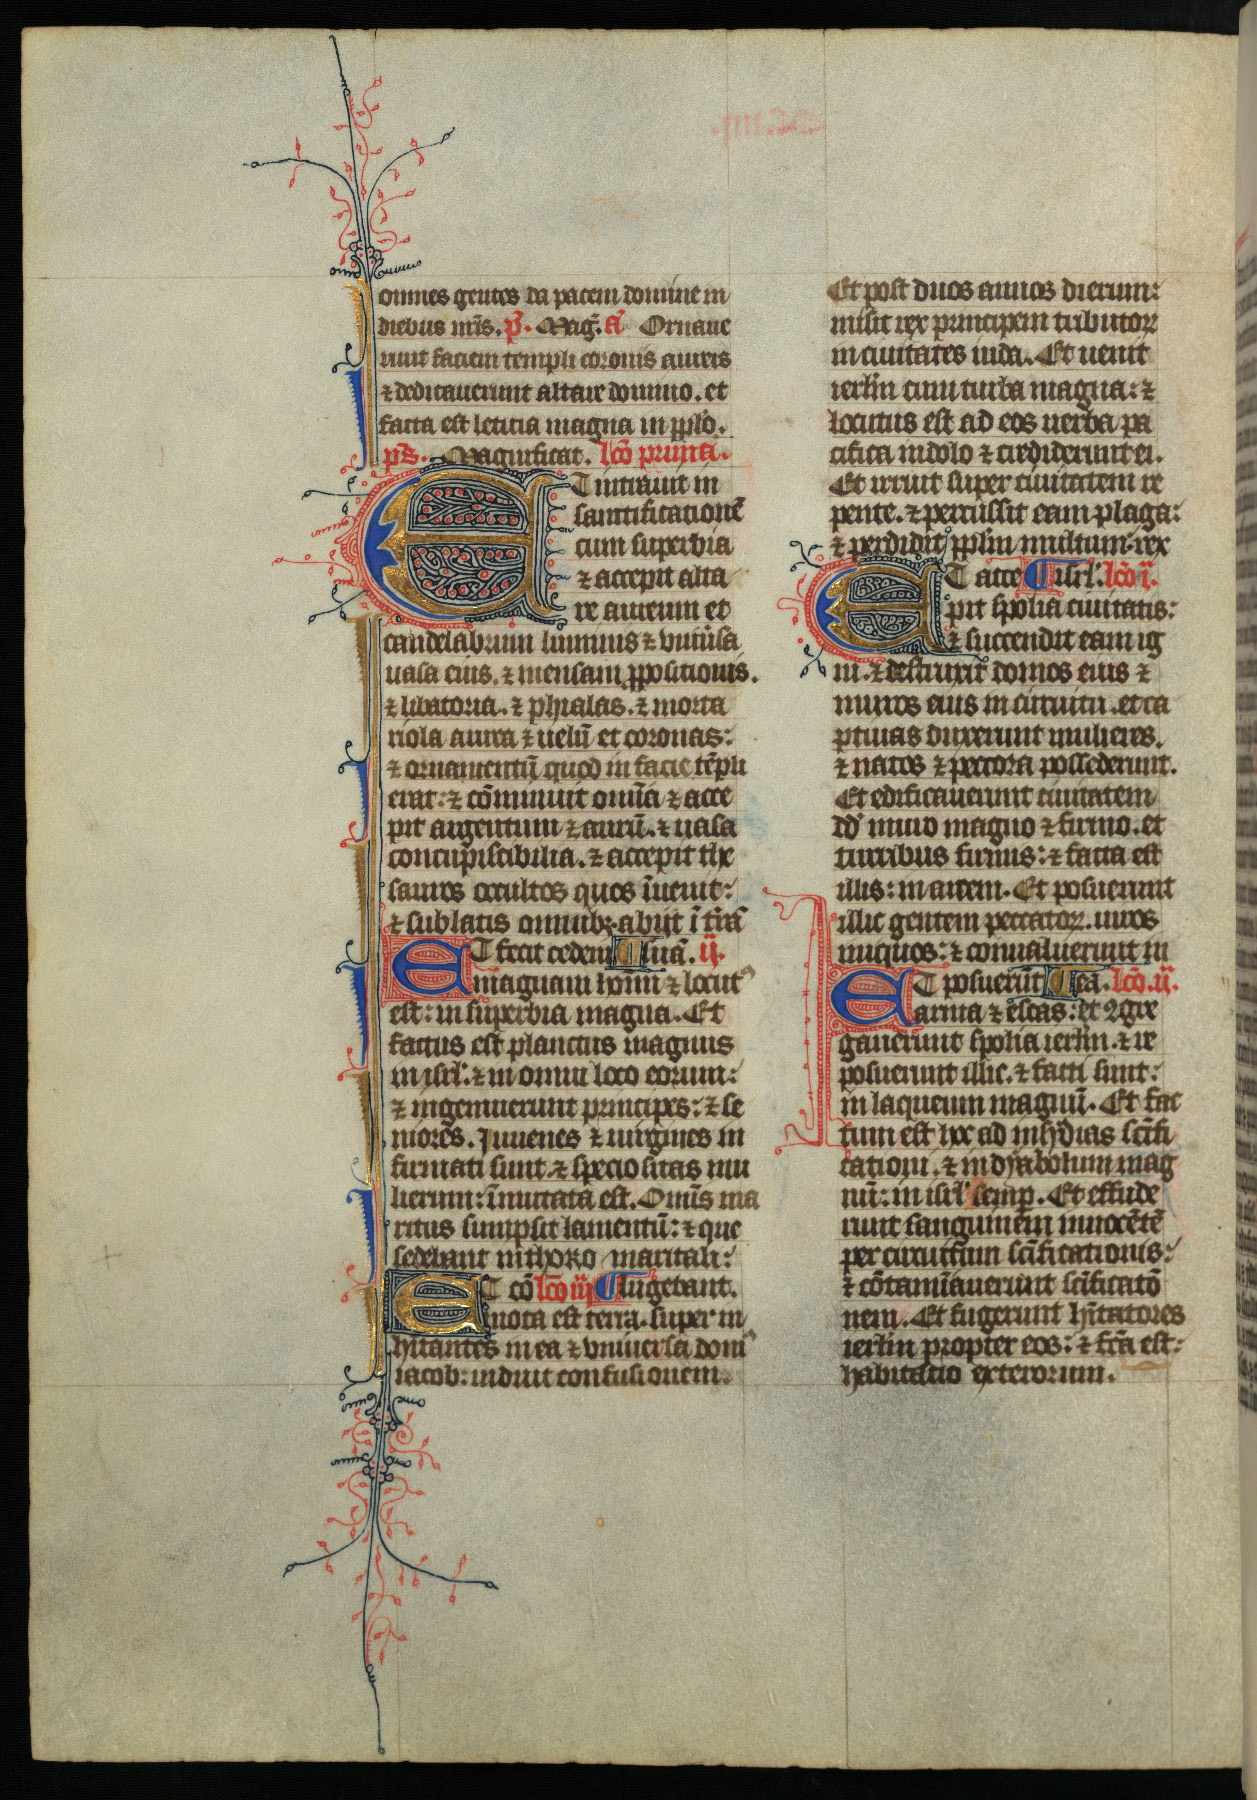 omnes gentes da pacem domine in
diebus nr̄is. p̄. Mag̃. a͞ Ornaue
runt faciem templi coronis aureis
⁊ dedicauerunt altare domino. et
facta est leticia magna in pplō.
ps. Magnificat. lc̄o prima.
ET intrauit in
sanctificationē
cum superbia
⁊ accepit alta
re aureum et
candelabrum luminis ⁊ vniūsa
uasa eius. ⁊ mensam ppositionis.
⁊ libatoria. ⁊ phialas. ⁊ morta
riola aurea ⁊ uelū et coronas:
⁊ ornamentū quod in facie tēpli
erat: ⁊ cōminuit omīa ⁊ acce
pit argentum ⁊ aurū. ⁊ uasa
concupiscibilia. ⁊ accepit the
sauros occultos quos īuenit:
⁊ sublatis omnibꝫ abijt ī t̄rā
ET fecit cedem suā. ij.
magnam homī ⁊ locutꝰ
est: in superbia magna. Et
factus est planctus magnus
in isrl̄. ⁊ in omni loco eorum:
⁊ ingemuerunt principes: ⁊ se
niores. Juuenes ⁊ uirgines in
firmati sunt. ⁊ speciositas mu
lierum: īmutata est. Omīs ma
ritus sumpsit lamentū: ⁊ que
sedebant in thoro maritali:
ET cō lc̄o iij lugebant.
mota est terra. super in
hitantes in ea ⁊ vniuersa domꝰ
iacob: induit confusionem.
Et post duos annos dierum:
misit rex principem tributoꝝ
in ciuitates iuda. Et uenit
ierl̄m cum turba magna: ⁊
locutus est ad eos uerba pa
cifica in dolo ⁊ crediderunt ei.
Et irruit super ciuitatem re
pente. ⁊ percussit eam plaga:
⁊ perdidit ppl̄m multum. ex
ET acce isrl̄. lc̄o i.
pit spolia ciuitatis:
⁊ succendit eam ig
ni. ⁊ destruxit domos eius ⁊
muros eius in circuitu. et ca
ptiuas duxerunt mulieres.
⁊ natos ⁊ peccora possederunt.
Et edificauerunt ciuitatem
dd̄ muro magno ⁊ firmo. et
turribus firmis: ⁊ facta est
illis: in arcem. Et posuerunt
illic gentem peccatoꝝ. uiros
iniquos: ⁊ conualuerunt in
ET posuerūt ea. lc̄o. ij.
arma ⁊ escas: et ꝯgre
gauerunt spolia ierl̄m. ⁊ re
posuerunt illic. ⁊ facti sunt:
in laqueum magnū. Et fac
tum est hec ad insydias sc̄ifi
cationi. ⁊ in dyabolum mag
nū: in isrl̄ semp. Et effude
runt sanguinem innocētē
per circuitum sc̄ificationis:
⁊ cōtamīauerunt sc̄ificatō
nem. Et fugerunt hītatores
ierl̄m propter eos: ⁊ fc̄a est:
habitatio exterorum.